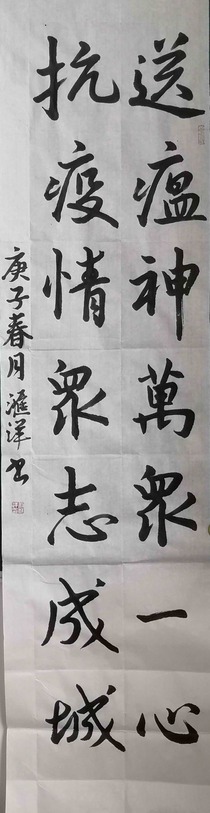 送瘟神萬眾一心
抗疫情眾志成城
庚子春月滙洋书